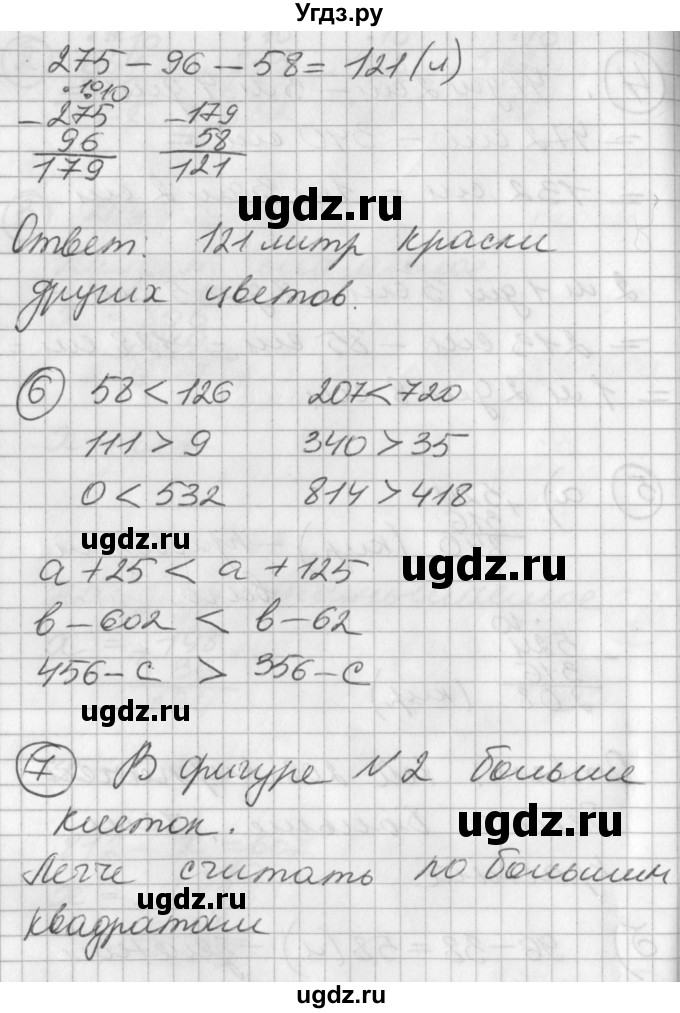 Угдз.ру
275 – 96 – 58 = 121 (л)
. 10 10
– 275 – 179
96 58
179 121
ugdz.ru
Ответ: 121 литр краски
других цветов.
ugdz.ru
6 58 < 126 207 < 720
111 > 9 340 > 35
0 < 532 814 > 418
ugdz.ru
ugdz.ru
a + 25 < a + 125
в – 602 < в – 62
456 – с > 356 – с
ugdz.ru
7 В фигуре №2 больше
клеток.
ugdz.ru
Легче считать по большим
ugdz.ru
квадратам
ugdz.ru